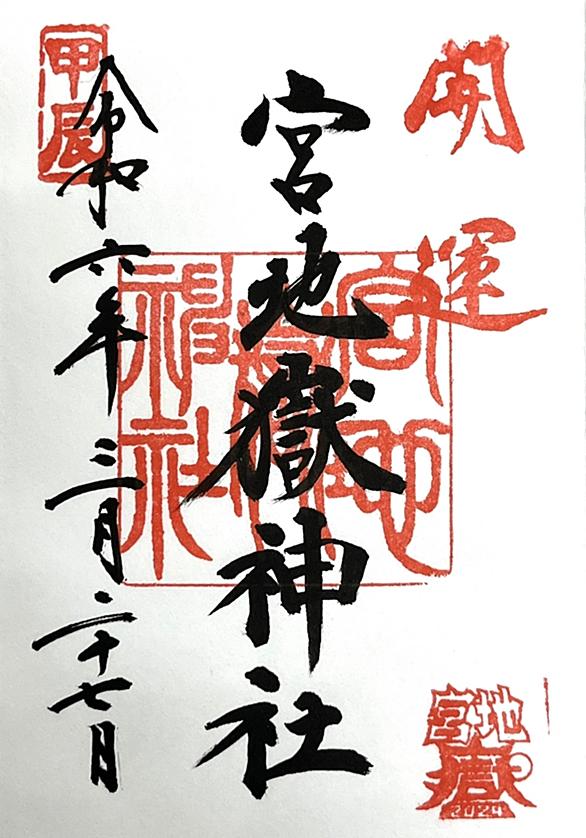 開運
宮地嶽神社
宮地
嶽
神社
甲辰
令和六年三月二十七月
宮地
嶽
2024